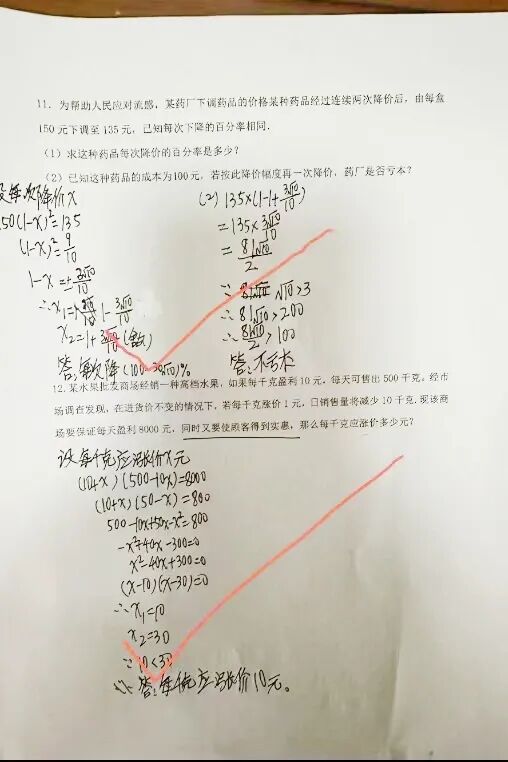 11. 为帮助人民应对流感，某药厂下调药品的价格某种药品经过连续两次降价后，由每盒
150元下调至135元，已知每次下降的百分率相同．
（1）求这种药品每次降价的百分率是多少？
（2）已知这种药品的成本为100元，若按此降价幅度再一次降价，药厂是否亏本？
设每次降价x
150(1-x)²=135
(1-x)²=9/10
1-x=±3√10/10
∴x₁=1-3√10/10
x₂=1+3√10/10(舍)
答:每次降(100-30√10)%
(2) 135×(1-1+3√10/10)
=135×3√10/10
=81√10/2
∵√10>3
∴81√10>200
∴81√10/2>100
答:不亏本
12. 某水果批发商场经销一种高档水果，如果每千克盈利10元，每天可售出500千克。经市
场调查发现，在进货价不变的情况下，若每千克涨价1元，日销售量将减少10千克．现该商
场要保证每天盈利8000元，同时又要使顾客得到实惠，那么每千克应涨价多少元？
设每千克应涨价x元
(10+x)(500-10x)=8000
(10+x)(50-x)=800
500-10x+50x-x²=800
-x²+40x-300=0
x²-40x+300=0
(x-10)(x-30)=0
∴x₁=10
x₂=30
∵10<30
答:每千克应涨价10元。